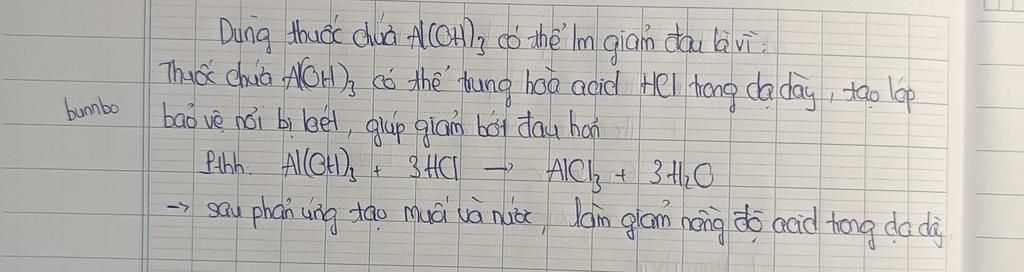 Dùng thuốc chứa Al(OH)3 có thể lm giảm đau là vì:
Thuốc chứa Al(OH)3 có thể trung hoà acid HCl trong dạ dày, tạo lớp
bunnbo
bảo vệ nơi bị loét, giúp giảm bớt đau hơn
Pthh. Al(OH)3 + 3HCl → AlCl3 + 3H2O
→ sau phản ứng tạo muối và nước, làm giảm nồng độ acid trong dạ dày